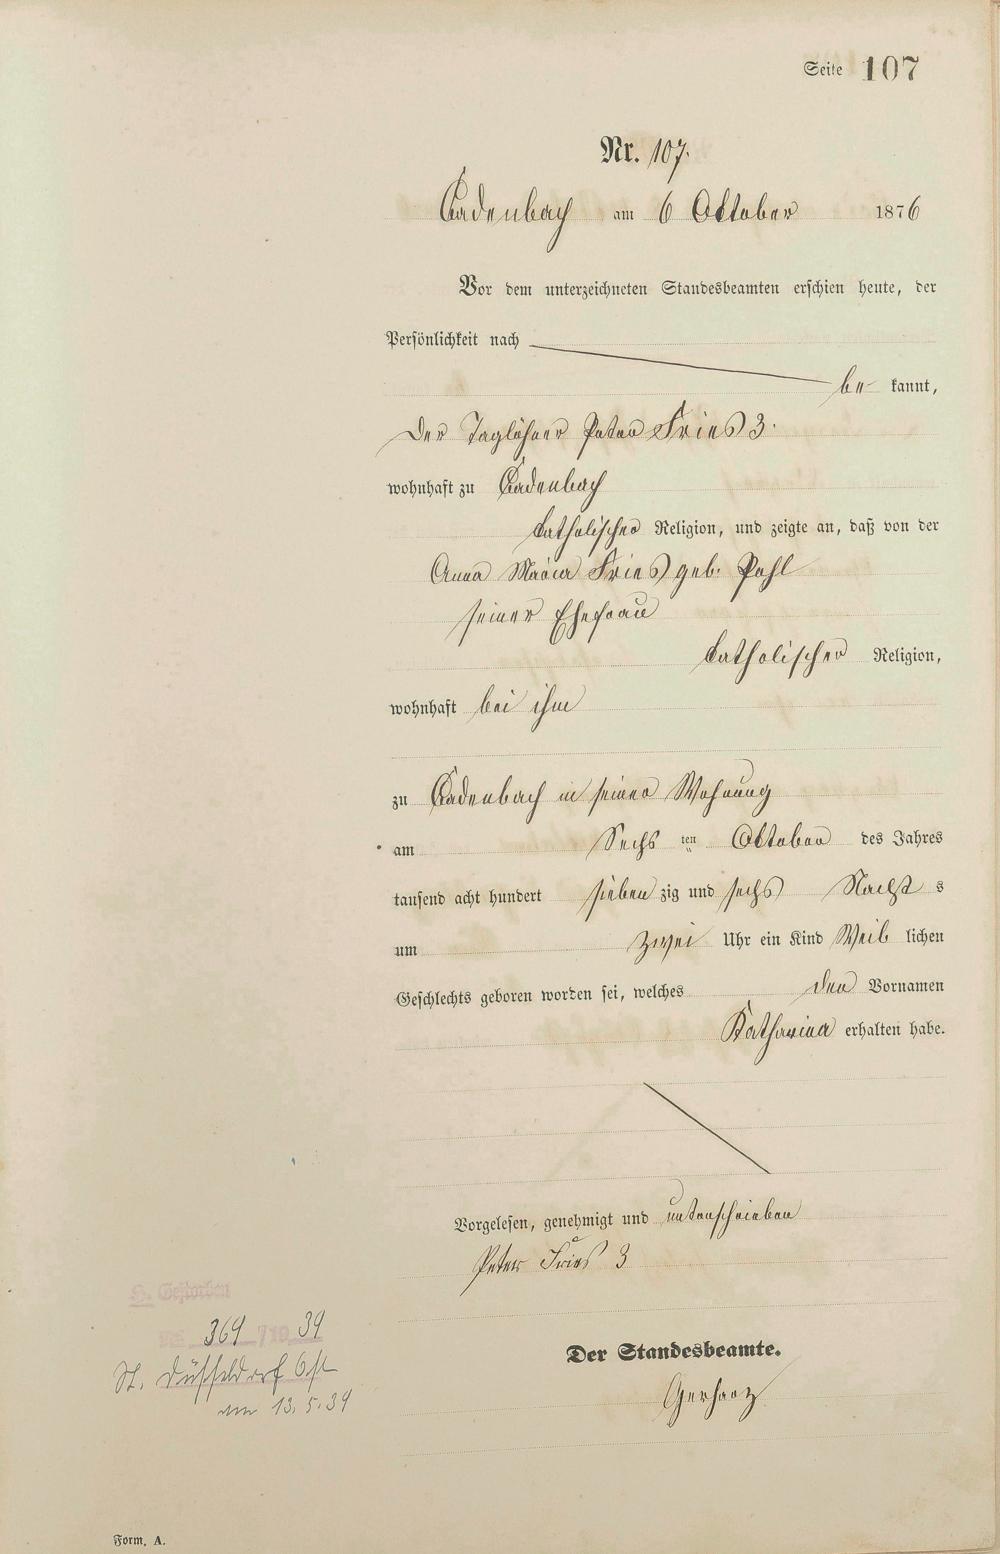 Seite 107
Nr. 107.
Cadenbach am 6 Oktober 1876
Vor dem unterzeichneten Standesbeamten erschien heute, der
Persönlichkeit nach
be kannt,
der Taglöhner Peter Fries 3.
wohnhaft zu Cadenbach
katholischer Religion, und zeigte an, daß von der
Anna Maria Fries geb. Pohl
seiner Ehefrau
katholischer Religion,
wohnhaft bei ihm
zu Cadenbach in seiner Wohnung
am Sechs ten Oktober des Jahres
tausend acht hundert sieben zig und sechs Nacht s
um zwei Uhr ein Kind Weib lichen
Geschlechts geboren worden sei, welches den Vornamen
Katharina erhalten habe.
Vorgelesen, genehmigt und unterschrieben
Peter Fries 3
H. Gestorben
369 /19 39
St. Düsseldorf Ost
am 13.5.39
Der Standesbeamte.
Gerharz
Form. A.